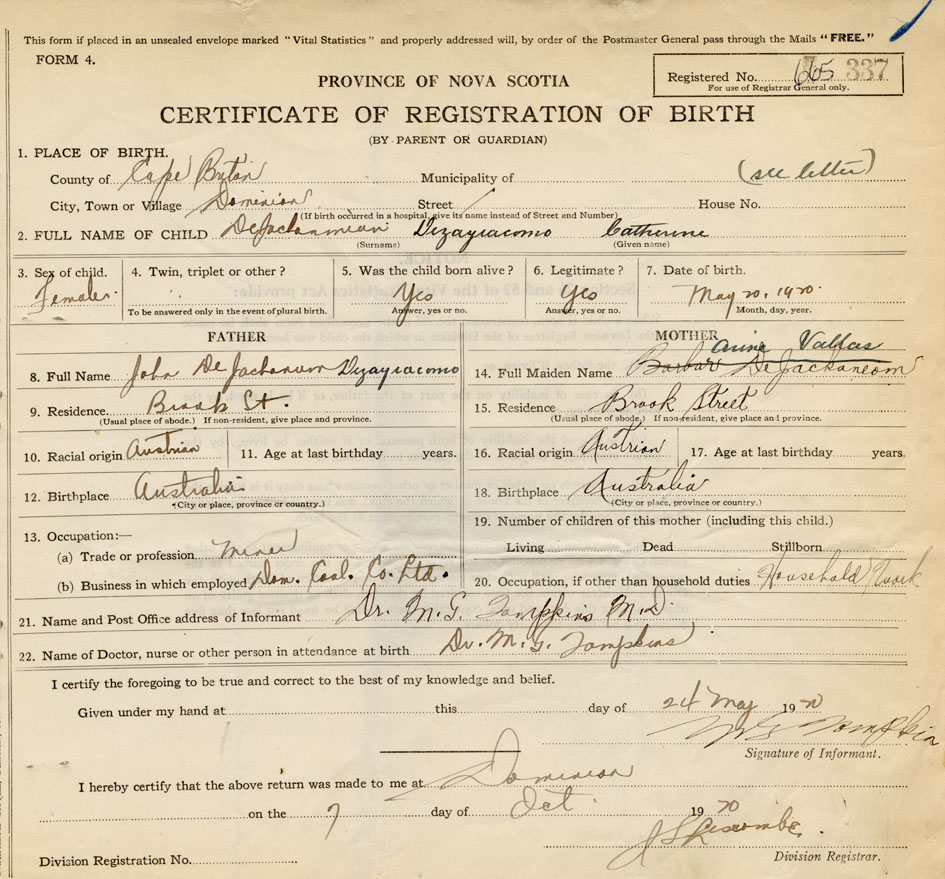 This form if placed in an unsealed envelope marked "Vital Statistics" and properly addressed will, by order of the Postmaster General pass through the Mails "FREE."
FORM 4.
PROVINCE OF NOVA SCOTIA
Registered No. 665 337
For use of Registrar General only.
CERTIFICATE OF REGISTRATION OF BIRTH
(BY PARENT OR GUARDIAN)
1. PLACE OF BIRTH.
County of Cape Breton Municipality of (see letter)
City, Town or Village Dominion Street House No.
(If birth occurred in a hospital, give its name instead of Street and Number)
2. FULL NAME OF CHILD Dizagiacomo Catherine
(Surname) (Given name)
3. Sex of child. 4. Twin, triplet or other? 5. Was the child born alive? 6. Legitimate? 7. Date of birth.
Female. Yes Yes May 20, 1920.
To be answered only in the event of plural birth. Answer, yes or no. Answer, yes or no. Month, day, year.
FATHER MOTHER
Anne Vallas
8. Full Name John Dizagiacomo 14. Full Maiden Name Barbar
9. Residence. Brook St. 15. Residence Brook Street
(Usual place of abode.) If non-resident, give place and province. (Usual place of abode.) If non-resident, give place and province.
10. Racial origin Austrian 11. Age at last birthday years. 16. Racial origin Austrian 17. Age at last birthday years.
12. Birthplace Australia 18. Birthplace Australia
(City or place, province or country.) (City or place, province or country.)
13. Occupation:— 19. Number of children of this mother (including this child.)
(a) Trade or profession Miner Living Dead Stillborn
(b) Business in which employed Dom. Coal. Co. Ltd. 20. Occupation, if other than household duties Household Work
21. Name and Post Office address of Informant Dr. M. G. Tompkins M.D.
22. Name of Doctor, nurse or other person in attendance at birth Dr. M. G. Tompkins
I certify the foregoing to be true and correct to the best of my knowledge and belief.
Given under my hand at this day of 24 May 1920
M G Tompkins
Signature of Informant.
I hereby certify that the above return was made to me at Dominion
on the 7 day of Oct. 1920
Division Registration No. Division Registrar.